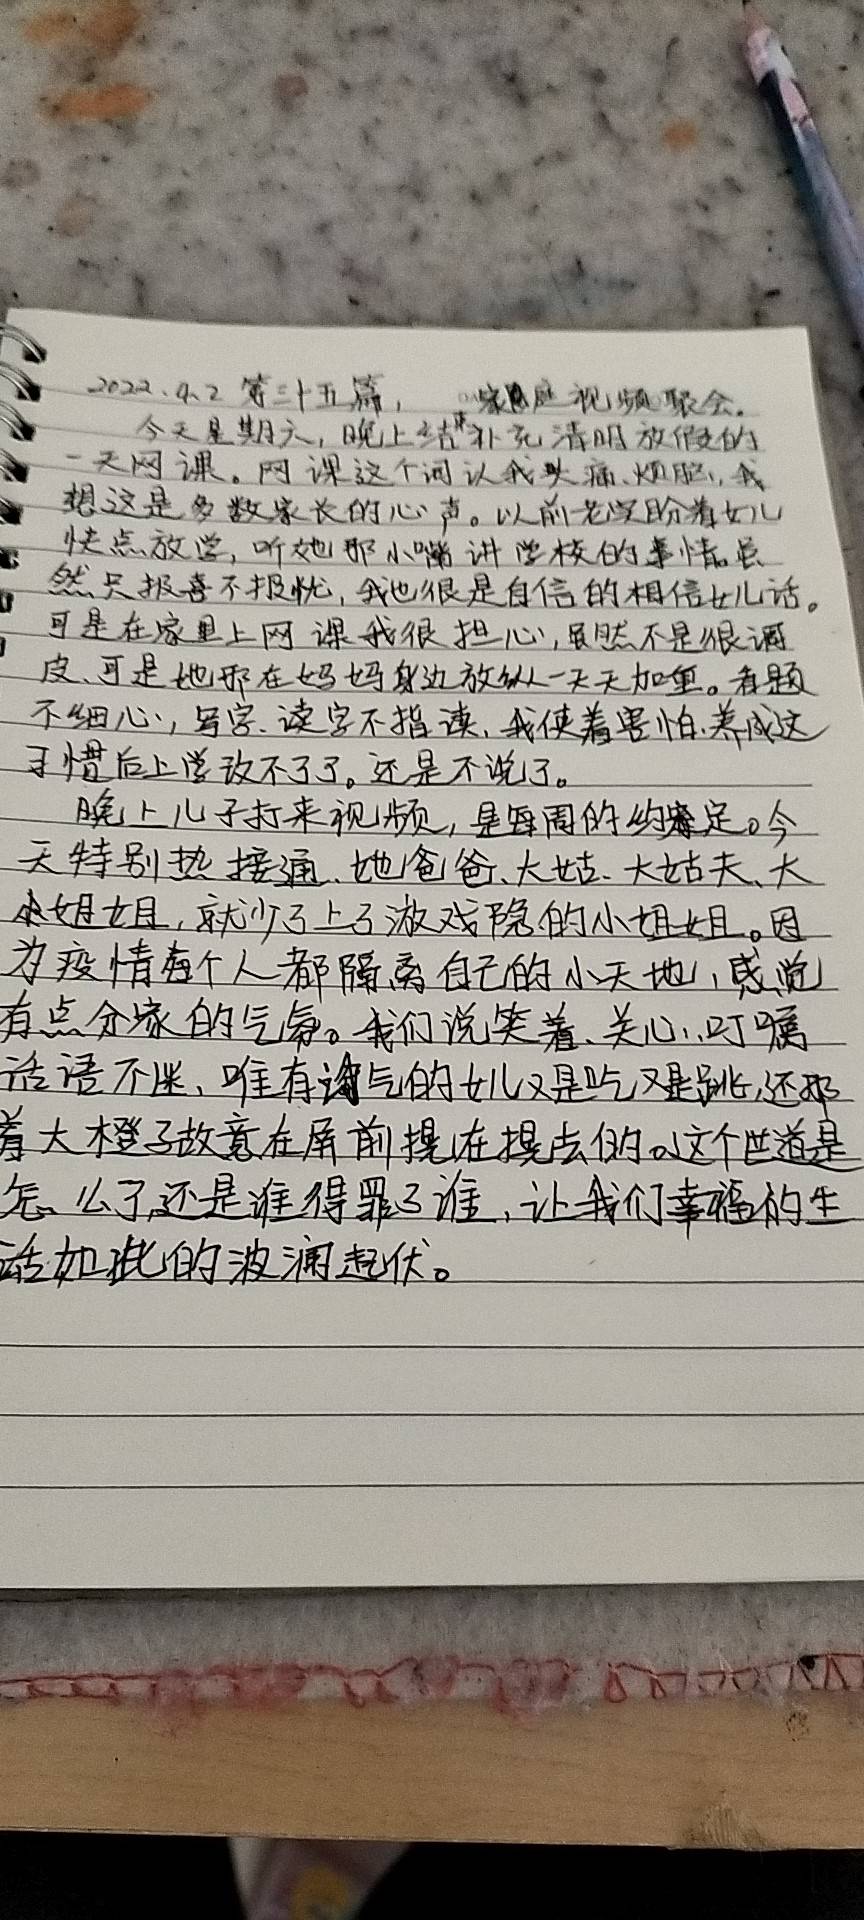 2022.4.2 第三十五篇, 家庭视频聚会.
今天是期六,晚上结束补充清明放假的
一天网课。网课这个词认我头痛、烦脑,我
想这是多数家长的心声。以前老完盼着女儿
快点放学,听她那小嘴讲学校的事情。虽
然只报喜不报忧,我也很是自信的相信女儿话。
可是在家里上网课我很担心,虽然不是很调
皮、可是她那在妈妈身边放纵一天天加重。看题
不细心,写字、读字不指读、我使着害怕、养成这
习惯后上学改不了了。还是不说了。
晚上儿子打来视频,是每周的约定。今
天特别热接通、她爸爸、大姑、大姑夫、大
姐姐,就少了上了游戏隐的小姐姐。因
为疫情每个人都隔离自己的小天地,感觉
有点分家的气氛。我们说笑着、关心、叮嘱
话语不迷、唯有淘气的女儿又是吃又是跳,还那
着大橙子故意在屏前提在提去的。这个世道是
怎么了,还是谁得罪了谁,让我们幸福的生
活如此的波澜起伏。